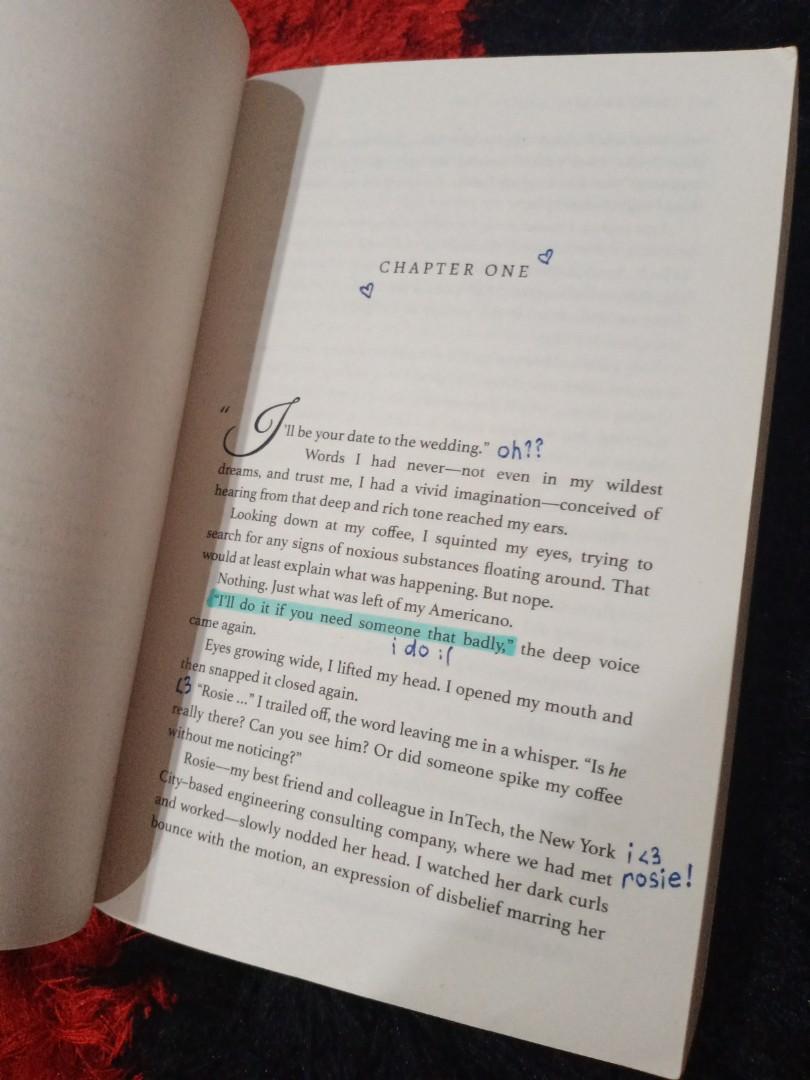 CHAPTER ONE
"I'll be your date to the wedding." oh??
Words I had never—not even in my wildest
dreams, and trust me, I had a vivid imagination—conceived of
hearing from that deep and rich tone reached my ears.
Looking down at my coffee, I squinted my eyes, trying to
search for any signs of noxious substances floating around. That
would at least explain what was happening. But nope.
Nothing. Just what was left of my Americano.
"I'll do it if you need someone that badly," the deep voice
came again.
i do :(
Eyes growing wide, I lifted my head. I opened my mouth and
then snapped it closed again.
<3 "Rosie ..." I trailed off, the word leaving me in a whisper. "Is he
really there? Can you see him? Or did someone spike my coffee
without me noticing?"
Rosie—my best friend and colleague in InTech, the New York
City–based engineering consulting company, where we had met
i <3
rosie!
and worked—slowly nodded her head. I watched her dark curls
bounce with the motion, an expression of disbelief marring her